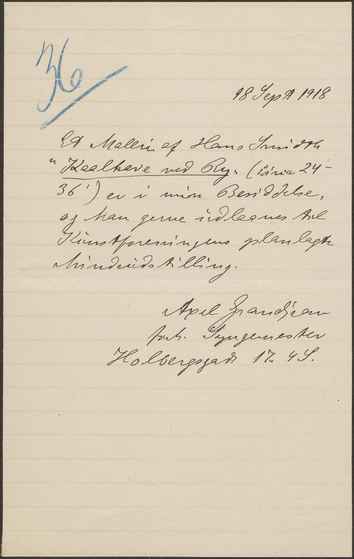 36
18 Sept 1918
Et Maleri af Hans Smidth
"Kaalhave ved Ry. (circa 24-
36") er i min Besiddelse,
og kan gerne udlaanes til
Kunstforeningens planlagte
Mindeudstilling.
Axel Grandjean
fhv. Syngemester
Holbergsgade 17. 4S.